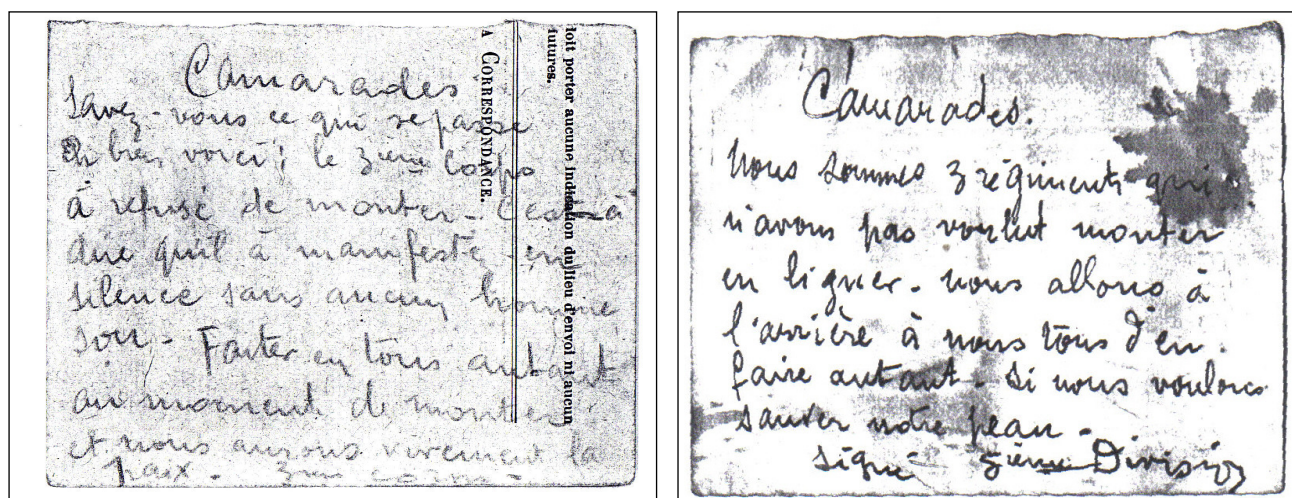 Camarades
Savez-vous ce qui se passe
voici : le 3ième Corps
à refusé de monter - C'est-à
dire qu'il à manifesté en
silence sans aucun homme
sou - Faiter en tous autant
au moment de monter
et nous aurons vivement la
paix - 3ème corps -
loit porter aucune indication du lieu d'envoi ni aucun
futures.
A CORRESPONDANCE.
Camarades.
Nous sommes 3 régiments qui
n'avons pas voulut monter
en ligner - nous allons à
l'arrière à nous tous d'en.
faire autant - si nous voulons
sauver notre peau -
Signé 5ième Division